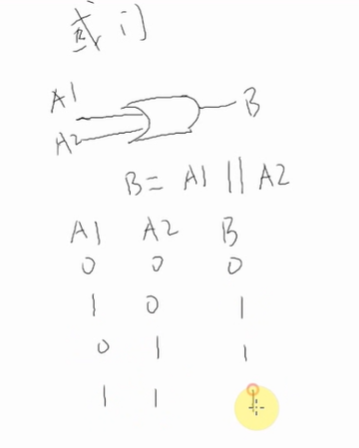 或门
A1
B
A2
B= A1 || A2
A1 A2 B
0 0 0
1 0 1
0 1 1
1 1